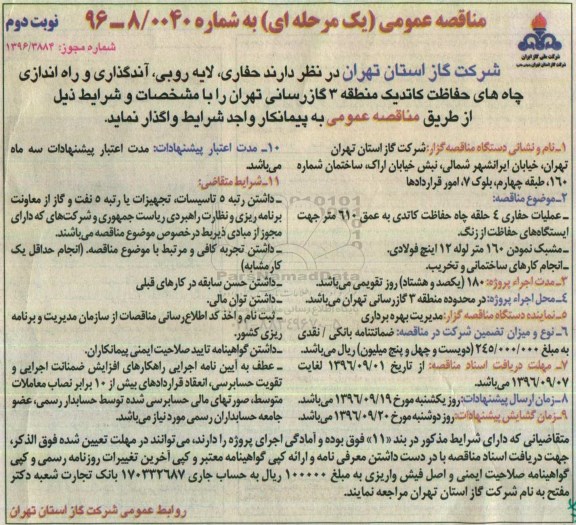 مناقصه عمومی (یک مرحله ای) به شماره ۸/۰۰۴۰ – ۹۶
نوبت دوم
شماره مجوز: ۱۳۹۶/۳۸۸۴
شرکت ملی گاز ایران
شرکت گاز استان تهران
شرکت گاز استان تهران در نظر دارند حفاری، لایه روبی، آندگذاری و راه اندازی
چاه های حفاظت کاتدیک منطقه ۳ گازرسانی تهران را با مشخصات و شرایط ذیل
از طریق مناقصه عمومی به پیمانکار واجد شرایط واگذار نماید.
۱ـ نام و نشانی دستگاه مناقصه گزار: شرکت گاز استان تهران
تهران، خیابان ایرانشهر شمالی، نبش خیابان اراک، ساختمان شماره
۱۶۰، طبقه چهارم، بلوک ۷، امور قراردادها
۲ـ موضوع مناقصه:
ـ عملیات حفاری ۴ حلقه چاه حفاظت کاتدی به عمق ۶۱۰ متر جهت
ایستگاه‌های حفاظت از زنگ.
ـ مشبک نمودن ۱۶۰ متر لوله ۱۲ اینچ فولادی.
ـ انجام کارهای ساختمانی و تخریب.
۳ـ مدت اجراء پروژه: ۱۸۰ (یکصد و هشتاد) روز تقویمی می‌باشد.
۴ـ محل اجراء پروژه: در محدوده منطقه ۳ گازرسانی تهران می‌باشد.
۵ـ نماینده دستگاه مناقصه گزار: مدیریت بهره برداری
۶ـ نوع و میزان تضمین شرکت در مناقصه: ضمانتنامه بانکی / نقدی
به مبلغ ۲۴۵/۰۰۰/۰۰۰ (دویست و چهل و پنج میلیون) ریال می‌باشد.
۷ـ مهلت دریافت اسناد مناقصه: از تاریخ ۱۳۹۶/۰۹/۰۱ لغایت
۱۳۹۶/۰۹/۰۷ می‌باشد.
۸ـ زمان ارسال پیشنهادات: روز یکشنبه مورخ ۱۳۹۶/۰۹/۱۹ می‌باشد.
۹ـ زمان گشایش پیشنهادات: روز دوشنبه مورخ ۱۳۹۶/۰۹/۲۰ می‌باشد.
۱۰ـ مدت اعتبار پیشنهادات: مدت اعتبار پیشنهادات سه ماه
می‌باشد.
۱۱ـ شرایط متقاضی:
ـ داشتن رتبه ۵ تاسیسات، تجهیزات یا رتبه ۵ نفت و گاز از معاونت
برنامه ریزی و نظارت راهبردی ریاست جمهوری و شرکت‌های که دارای
مجوز از مبادی ذیربط درخصوص موضوع مناقصه می‌باشند.
ـ داشتن تجربه کافی و مرتبط با موضوع مناقصه. (انجام حداقل یک
کار مشابه)
ـ داشتن حسن سابقه در کارهای قبلی
ـ داشتن توان مالی.
ـ ثبت نام و اخذ کد اطلاع‌رسانی مناقصات از سازمان مدیریت و برنامه
ریزی کشور.
ـ داشتن گواهینامه تایید صلاحیت ایمنی پیمانکاران.
ـ عطف به آیین نامه اجرایی راهکارهای افزایش ضمانت اجرایی و
تقویت حسابرسی، انعقاد قراردادهای بیش از ۱۰ برابر نصاب معاملات
متوسط، صورتهای مالی حسابرسی شده توسط حسابدار رسمی، عضو
جامعه حسابداران رسمی مورد نیاز می‌باشد.
متقاضیانی که دارای شرایط مذکور در بند «۱۱» فوق بوده و آمادگی اجرای پروژه را دارند، می‌توانند در مهلت تعیین شده فوق الذکر،
جهت دریافت اسناد مناقصه با در دست داشتن معرفی نامه و ارائه کپی گواهینامه معتبر و کپی آخرین تغییرات روزنامه رسمی و کپی
گواهینامه صلاحیت ایمنی و اصل فیش واریزی به مبلغ ۱۰۰۰۰۰ ریال به حساب جاری ۱۷۰۳۳۲۶۸۷ بانک تجارت شعبه دکتر
مفتح به نام شرکت گاز استان تهران مراجعه نمایند.
روابط عمومی شرکت گاز استان تهران